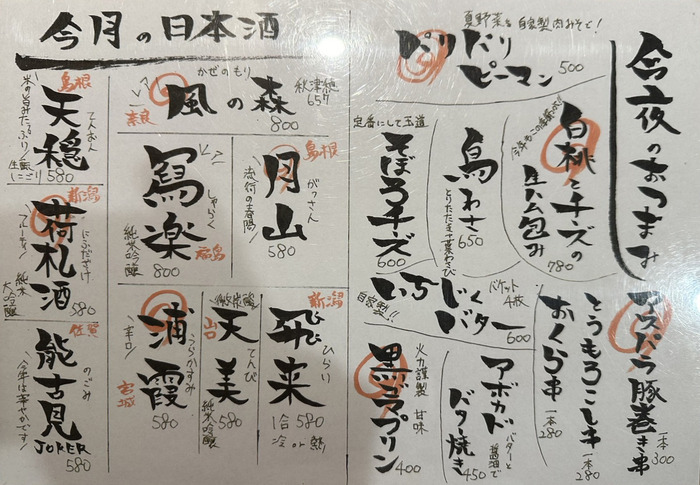 今夜のおつまみ
夏野菜を自家製肉みそで!
パリパリ
ピーマン 500
今年もこの季節が!!
白桃とチーズの
生ハム包み
780
鳥わさ
とりたたき
650
定番にして王道
そぼろチーズ
600
いちじく
バター
バケット
4枚
600
自家製!!
アスパラ豚巻き串
一本
300
とうもろこし串
一本
280
おくら串
一本
280
アボカド
バター焼き
バターと
醤油で
450
火力謹製 甘味
黒ゴマプリン
400
今月の日本酒
かぜのもり
風の森
秋津穂
657
奈良
800
島根
天穏
てんおん
米の旨みたっぷり!
生酛
にごり
580
島根
月山
がっさん
流行の春陽!
580
しゃらく
寫楽
福島
純米吟醸
800
新潟
荷札酒
にふだざけ
フルーティ!
純米
大吟醸
580
うらかすみ
浦霞
辛口
宮城
580
山口
天美
てんび
純米吟醸
580
新潟
飛来
ひらい
1合 580
冷 or 熱
佐賀
能古見
のごみ
JOKER
今年は華やかです!
580